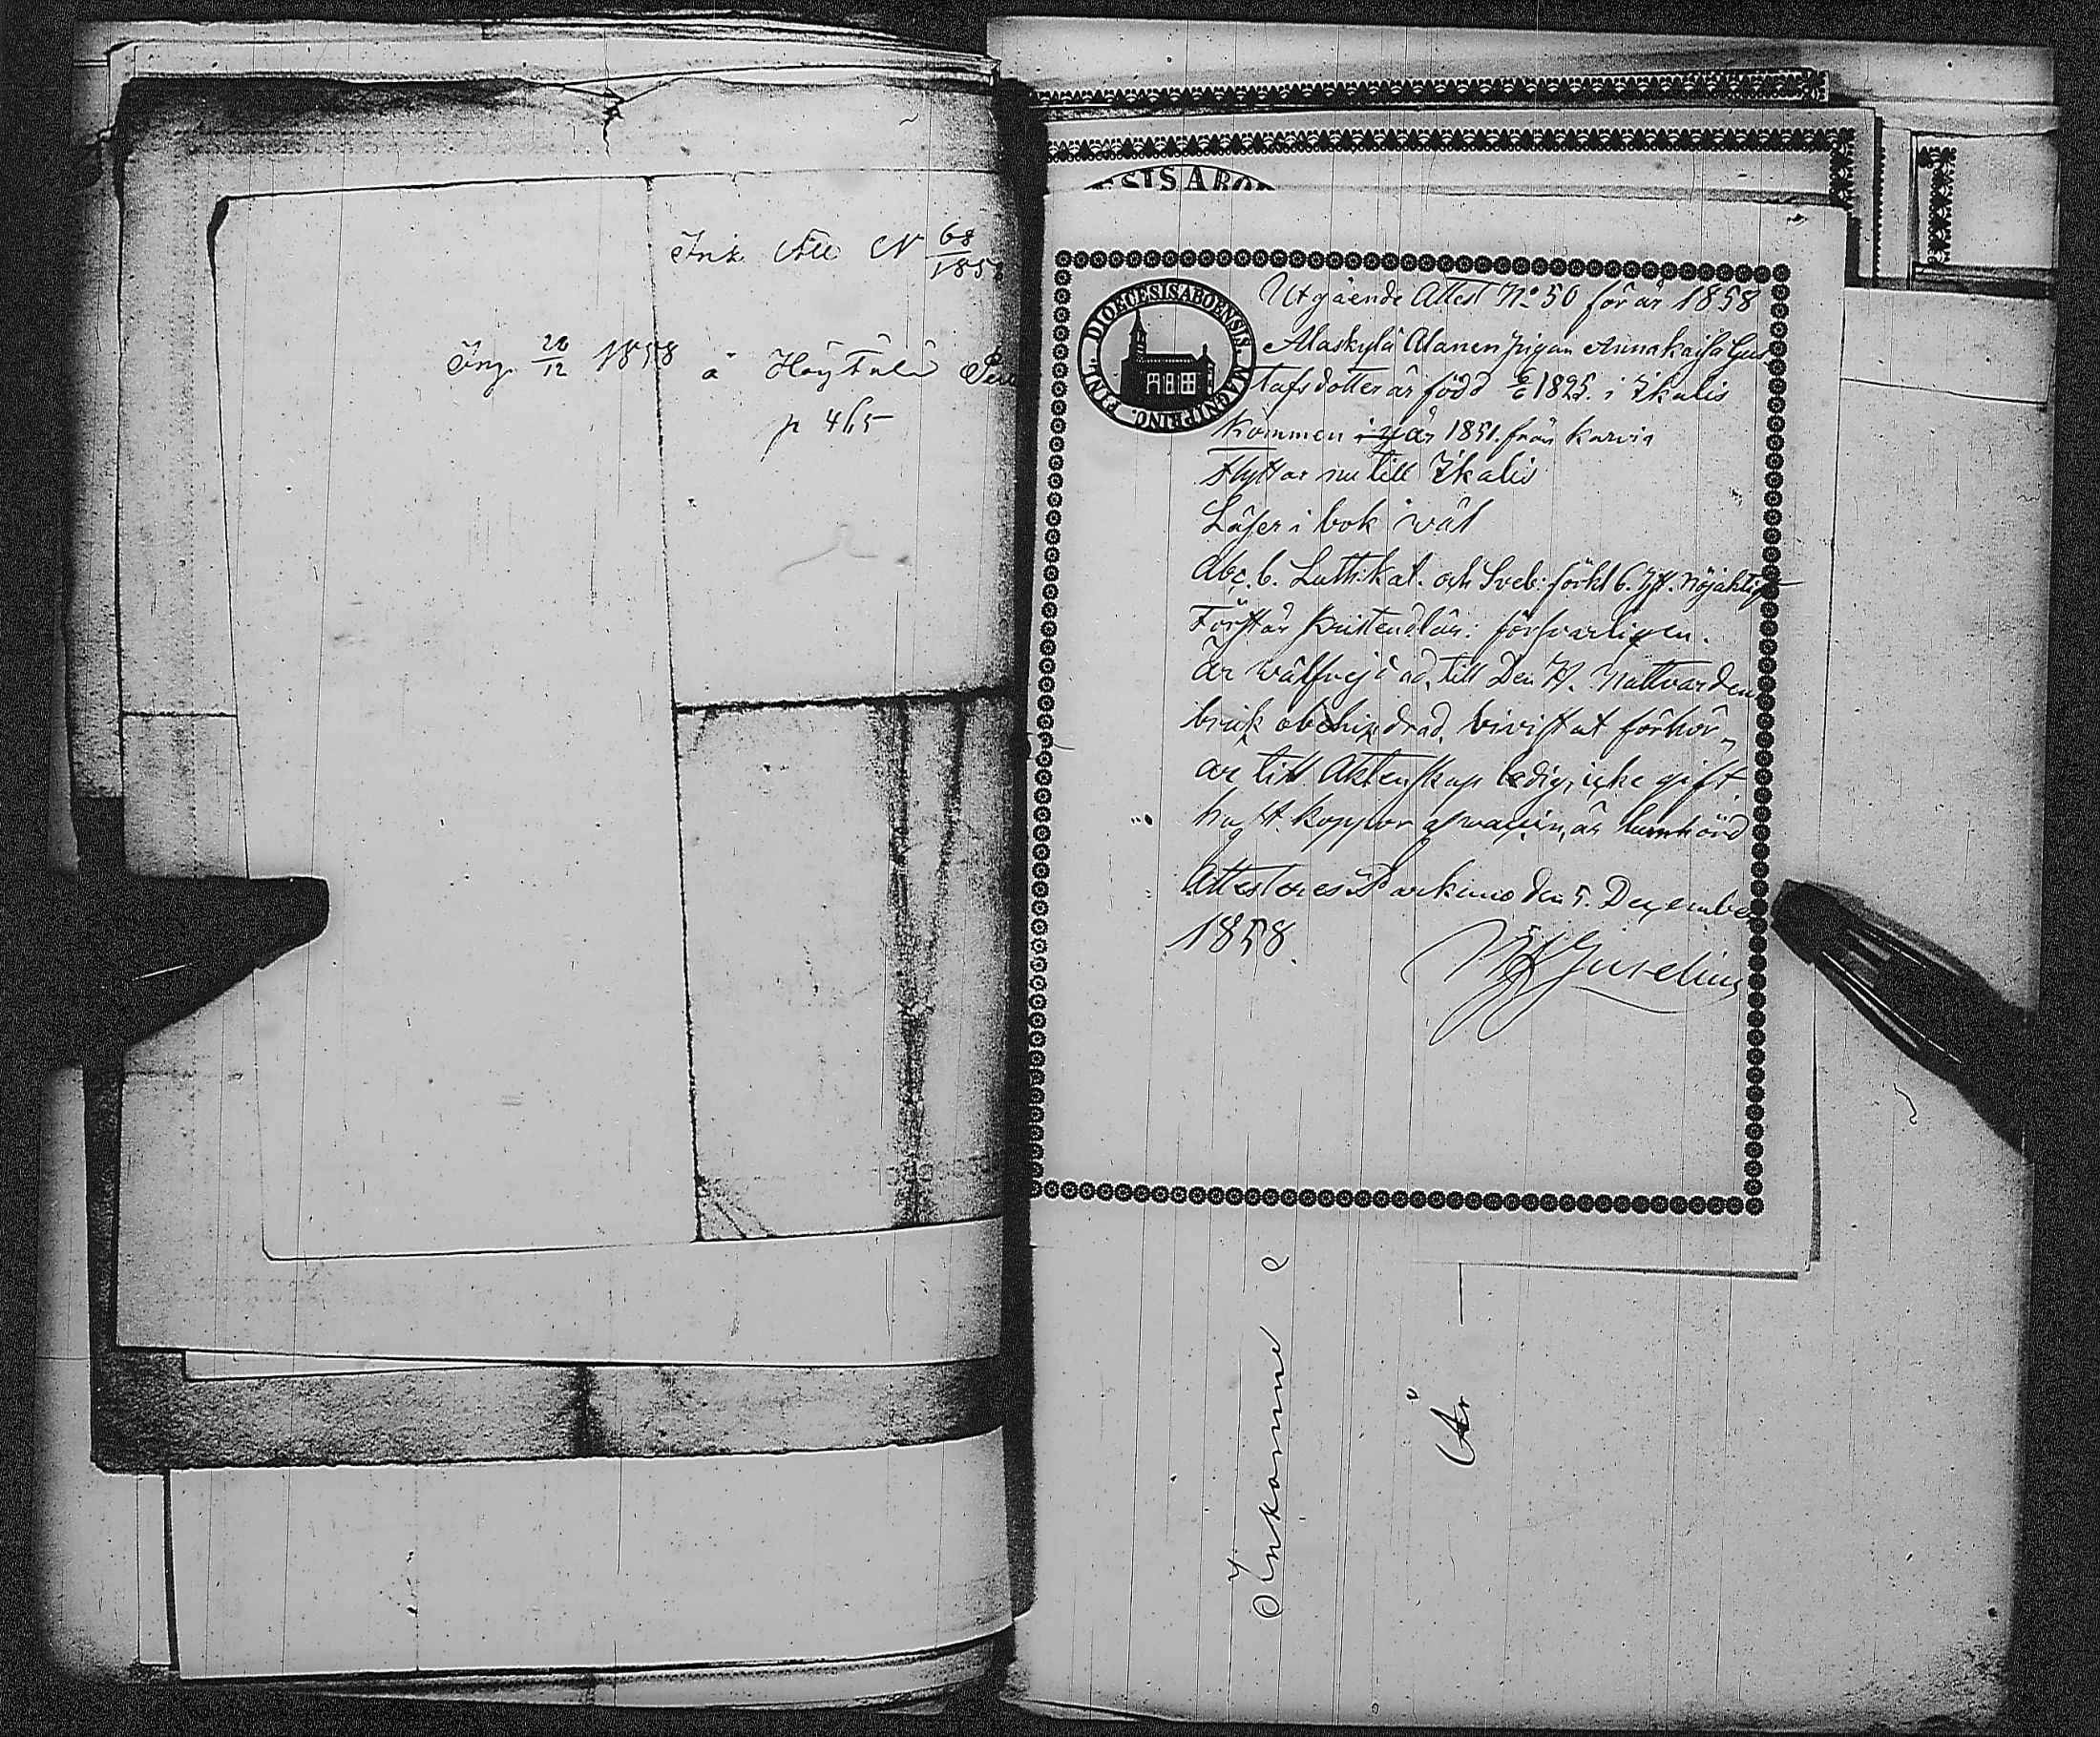 Ink. Att N 68/1858
Ing. 20/12 1858 å Höytölä
p 465
ESIS ABO
DIOECESIS ABOENSIS. MAGNI PRINC. FINL.
Utgående Attest No 50 för år 1858
Alaskylä Alanen pigan Anna Kaisa Gus
tafs dotter är född 1825. i Ikalis
Kommen år 1851. från Karvia
flyttar nu till Ikalis
Läser i bok väl
Abc. b. Luth. Kat. och Sveb: förkl
Förstår Kristend lär: försvarligen.
är till Den H. Nattvarden
bruk obehindrad, bivistat förhör
är till Äktenskap ledig, icke gift
haft koppor är lomhörd
Attesteres Parkano den 5. December
1858.
Inkomne
År